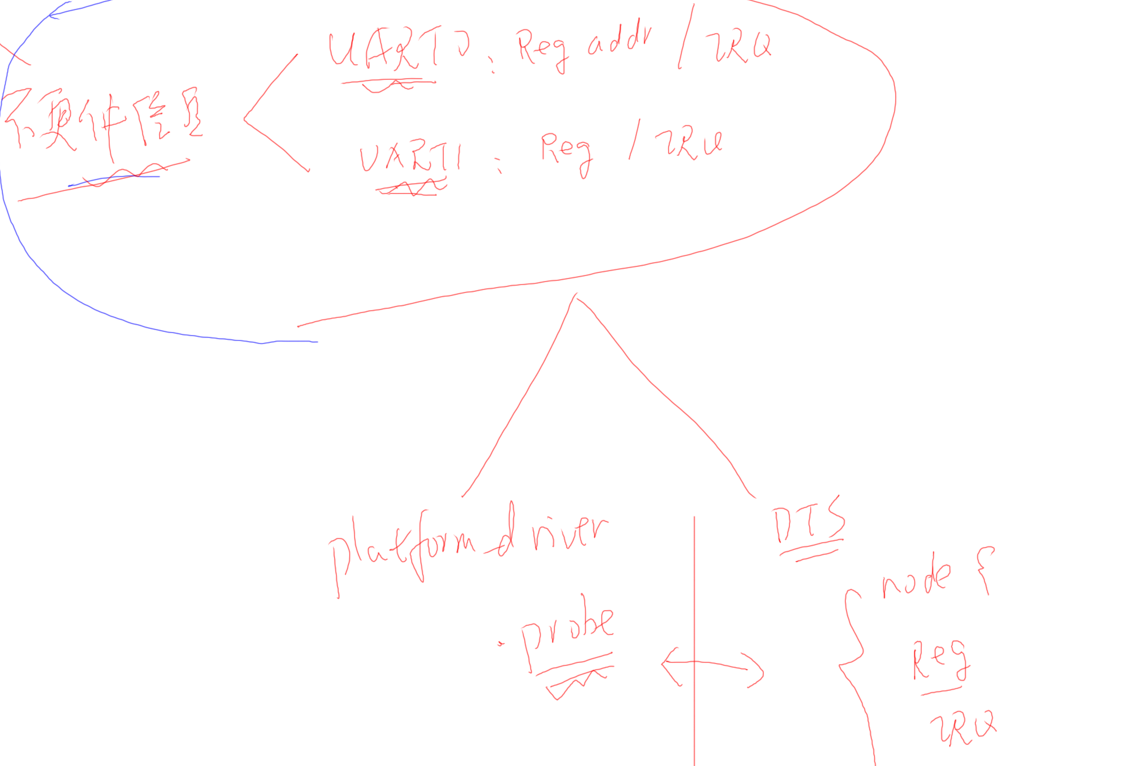 硬件信息
UART0: Reg addr / IRQ
UART1: Reg / IRQ
platform_driver
probe
DTS
node {
Reg
IRQ